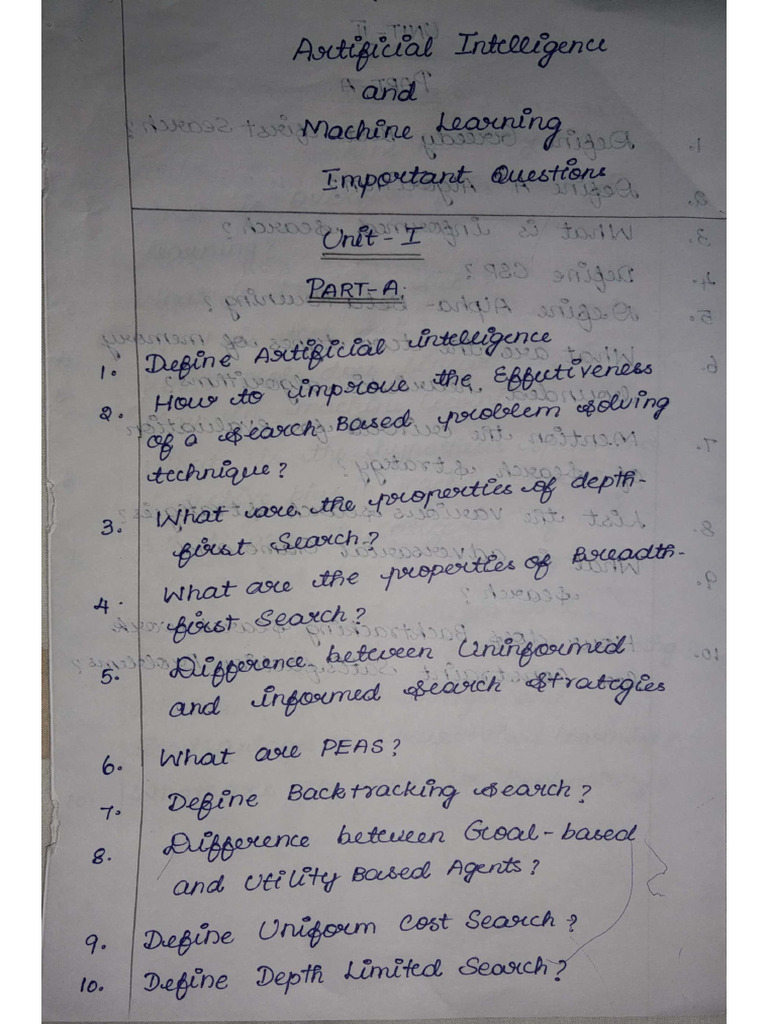 Artificial Intelligence
and
Machine Learning
Important Questions
Unit - I
PART-A:
1. Define Artificial intelligence
2. How to improve the Effutiveness
of a search Based problem solving
technique?
3. What are the properties of depth-
first Search?
4. What are the properties of Breadth-
first Search?
5. Difference between Uninformed
and informed search strategies
6. What are PEAS?
7. Define Backtracking search?
8. Difference between Goal-based
and Utility Based Agents?
9. Define Uniform Cost Search?
10. Define Depth Limited Search?